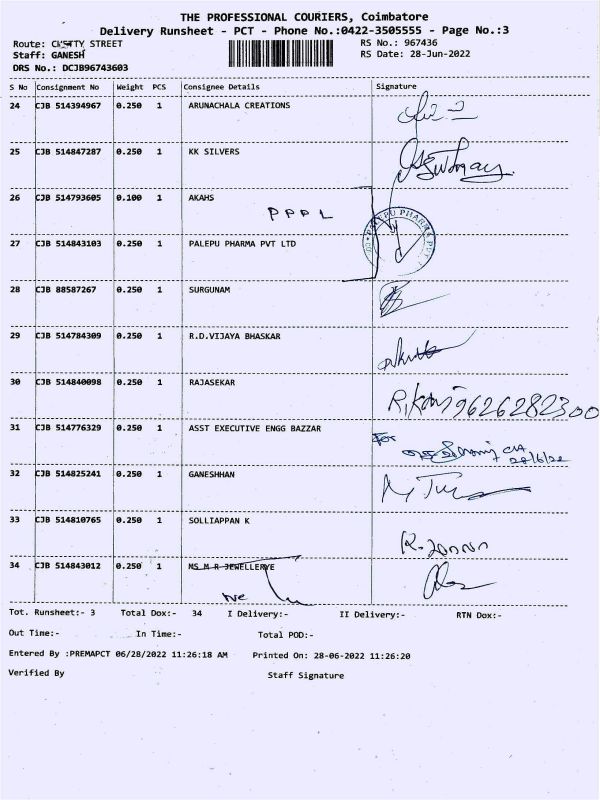 THE PROFESSIONAL COURIERS, Coimbatore
Delivery Runsheet - PCT - Phone No.:0422-3505555 - Page No.:3
Route: CHETTY STREET RS No.: 967436
Staff: GANESH RS Date: 28-Jun-2022
DRS No.: DCJB96743603
S No Consignment No Weight PCS Consignee Details Signature
24 CJB 514394967 0.250 1 ARUNACHALA CREATIONS
25 CJB 514847287 0.250 1 KK SILVERS
26 CJB 514793605 0.100 1 AKAHS
PPPL
PALEPU PHARMA PVT
27 CJB 514843103 0.250 1 PALEPU PHARMA PVT LTD
28 CJB 88587267 0.250 1 SURGUNAM
29 CJB 514784309 0.250 1 R.D.VIJAYA BHASKAR
30 CJB 514840098 0.250 1 RAJASEKAR
9626282300
31 CJB 514776329 0.250 1 ASST EXECUTIVE ENGG BAZZAR
for
28/6/22
32 CJB 514825241 0.250 1 GANESHHAN
33 CJB 514810765 0.250 1 SOLLIAPPAN K
34 CJB 514843012 0.250 1 MS M R JEWELLERYE
Tot. Runsheet:- 3 Total Dox:- 34 I Delivery:- II Delivery:- RTN Dox:-
Out Time:- In Time:- Total POD:-
Entered By :PREMAPCT 06/28/2022 11:26:18 AM Printed On: 28-06-2022 11:26:20
Verified By Staff Signature